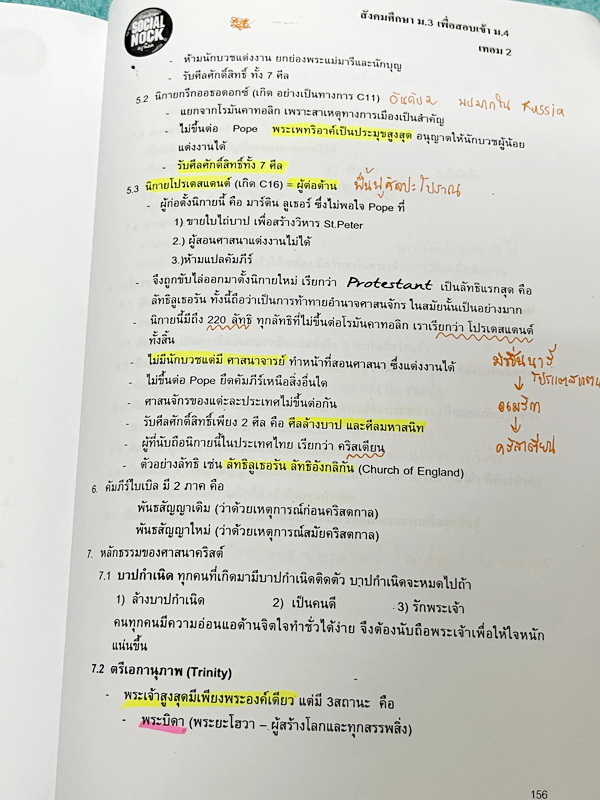 SOCIAL NOCK
สังคมศึกษา ม.3 เพื่อสอบเข้า ม.4
เทอม 2
- ห้ามนักบวชแต่งงาน ยกย่องพระแม่มารีและนักบุญ
- รับศีลศักดิ์สิทธิ์ ทั้ง 7 ศีล
5.2 นิกายกรีกออธอดอกซ์ (เกิด อย่างเป็นทางการ C11) อันดับ 2 พบมากใน Russia
- แยกจากโรมันคาทอลิก เพราะสาเหตุทางการเมืองเป็นสำคัญ
- ไม่ขึ้นต่อ Pope พระเพทริอาค์เป็นประมุขสูงสุด อนุญาตให้นักบวชผู้น้อย
แต่งงานได้
- รับศีลศักดิ์สิทธิ์ทั้ง 7 ศีล
5.3 นิกายโปรเตสแตนต์ (เกิด C16) = ผู้ต่อต้าน ฟื้นฟูศิลปะโบราณ
- ผู้ก่อตั้งนิกายนี้ คือ มาร์ติน ลูเธอร์ ซึ่งไม่พอใจ Pope ที่
1) ขายใบไถ่บาป เพื่อสร้างวิหาร St.Peter
2.) ผู้สอนศาสนาแต่งงานไม่ได้
3.)ห้ามแปลคัมภีร์
- จึงถูกขับไล่ออกมาตั้งนิกายใหม่ เรียกว่า Protestant เป็นลัทธิแรกสุด คือ
ลัทธิลูเธอรัน ทั้งนี้ถือว่าเป็นการท้าทายอำนาจศาสนจักร ในสมัยนั้นเป็นอย่างมาก
- นิกายนี้มีถึง 220 ลัทธิ ทุกลัทธิที่ไม่ขึ้นต่อโรมันคาทอลิก เราเรียกว่า โปรเตสแตนต์
ทั้งสิ้น
- ไม่มีนักบวชแต่มี ศาสนาจารย์ ทำหน้าที่สอนศาสนา ซึ่งแต่งงานได้
- ไม่ขึ้นต่อ Pope ยึดคัมภีร์เหนือสิ่งอื่นใด
- ศาสนจักรของแต่ละประเทศไม่ขึ้นต่อกัน
- รับศีลศักดิ์สิทธิ์เพียง 2 ศีล คือ ศีลล้างบาป และศีลมหาสนิท
- ผู้ที่นับถือนิกายนี้ในประเทศไทย เรียกว่า คริสเตียน
- ตัวอย่างลัทธิ เช่น ลัทธิลูเธอรัน ลัทธิอังกลิกัน (Church of England)
มิชชันนารี
โปรเตสแตน
↓
อเมริกา
↓
คริสเตียน
6. คัมภีร์ไบเบิล มี 2 ภาค คือ
พันธสัญญาเดิม (ว่าด้วยเหตุการณ์ก่อนคริสตกาล)
พันธสัญญาใหม่ (ว่าด้วยเหตุการณ์สมัยคริสตกาล)
7. หลักธรรมของศาสนาคริสต์
7.1 บาปกำเนิด ทุกคนที่เกิดมามีบาปกำเนิดติดตัว บาปกำเนิดจะหมดไปถ้า
1) ล้างบาปกำเนิด 2) เป็นคนดี 3) รักพระเจ้า
คนทุกคนมีความอ่อนแอด้านจิตใจทำชั่วได้ง่าย จึงต้องนับถือพระเจ้าเพื่อให้ใจหนัก
แน่นขึ้น
7.2 ตรีเอกานุภาพ (Trinity)
- พระเจ้าสูงสุดมีเพียงพระองค์เดียว แต่มี 3สถานะ คือ
- พระบิดา (พระยะโฮวา – ผู้สร้างโลกและทุกสรรพสิ่ง)
156